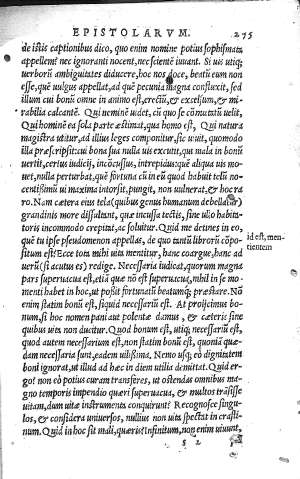 EPISTOLARVM. 275
de istis captionibus dico, quo enim nomine potius sophismata
appellem? nec ignoranti nocent, nec scientē iuuant. Si uis utiq;
uerborū ambiguitates diducere, hoc nos doce, beatū eum non
esse, quē uulgus appellat, ad quē pecunia magna confluxit, sed
illum cui bonū omne in animo est, erectū, & excelsum, & mi-
rabilia calcantē. Qui neminē uidet, cū quo se cōmutatū uelit.
Qui hominē ea sola parte æstimat, qua homo est, Qui natura
magistra utitur, ad illius leges componitur, sic uiuit, quomodo
illa præscripsit: cui bona sua nulla uis excutit, qui mala in bonū
uertit, certus iudicij, incōcussus, intrepidus: quē aliqua uis mo-
uet, nulla perturbat, quē fortuna cū in eū quod habuit telū no-
centissimū ui maxima intorsit, pungit, non uulnerat, & hoc ra
ro. Nam cætera eius tela (quibus genus humanum debellatur)
grandinis more dissultant, quæ incussa tectis, sine ullo habita-
toris incommodo crepitat, ac soluitur. Quid me detines in eo,
quē tu ipse pseudomenon appellas, de quo tantū librorū cōpo-
situm est? Ecce tota mihi uita mentitur, hanc coargue, hanc ad
uerū (si acutus es) redige. Necessaria iudicat, quorum magna
pars superuacua est, etiā quæ nō est superuacua, nihil in se mo-
menti habet in hoc, ut possit fortunatū beatumq; præstare. Nō
enim statim bonū est, siquid necessariū est. At proijcimus bo-
num, si hoc nomen pani aut polentæ damus, & cæteris sine
quibus uita non ducitur. Quod bonum est, utiq; necessariū est,
quod autem necessarium est, non statim bonū est, quoniā quæ-
dam necessaria sunt, eadem uilissima. Nemo usq; eo dignitatem
boni ignorat, ut illud ad hæc in diem utilia demittat. Quid er-
go? non eō potius curam transferes, ut ostendas omnibus ma-
gno temporis impendio quæri superuacua, & multos trāsisse
uitam, dum uitæ instrumenta conquirunt? Recognosce singu-
los, & considera uniuersos, nullius non uita spectat in crasti-
num. Quid in hoc sit mali, quæris? Infinitum, non enim uiuunt,
s 2
id est, men-
tientem